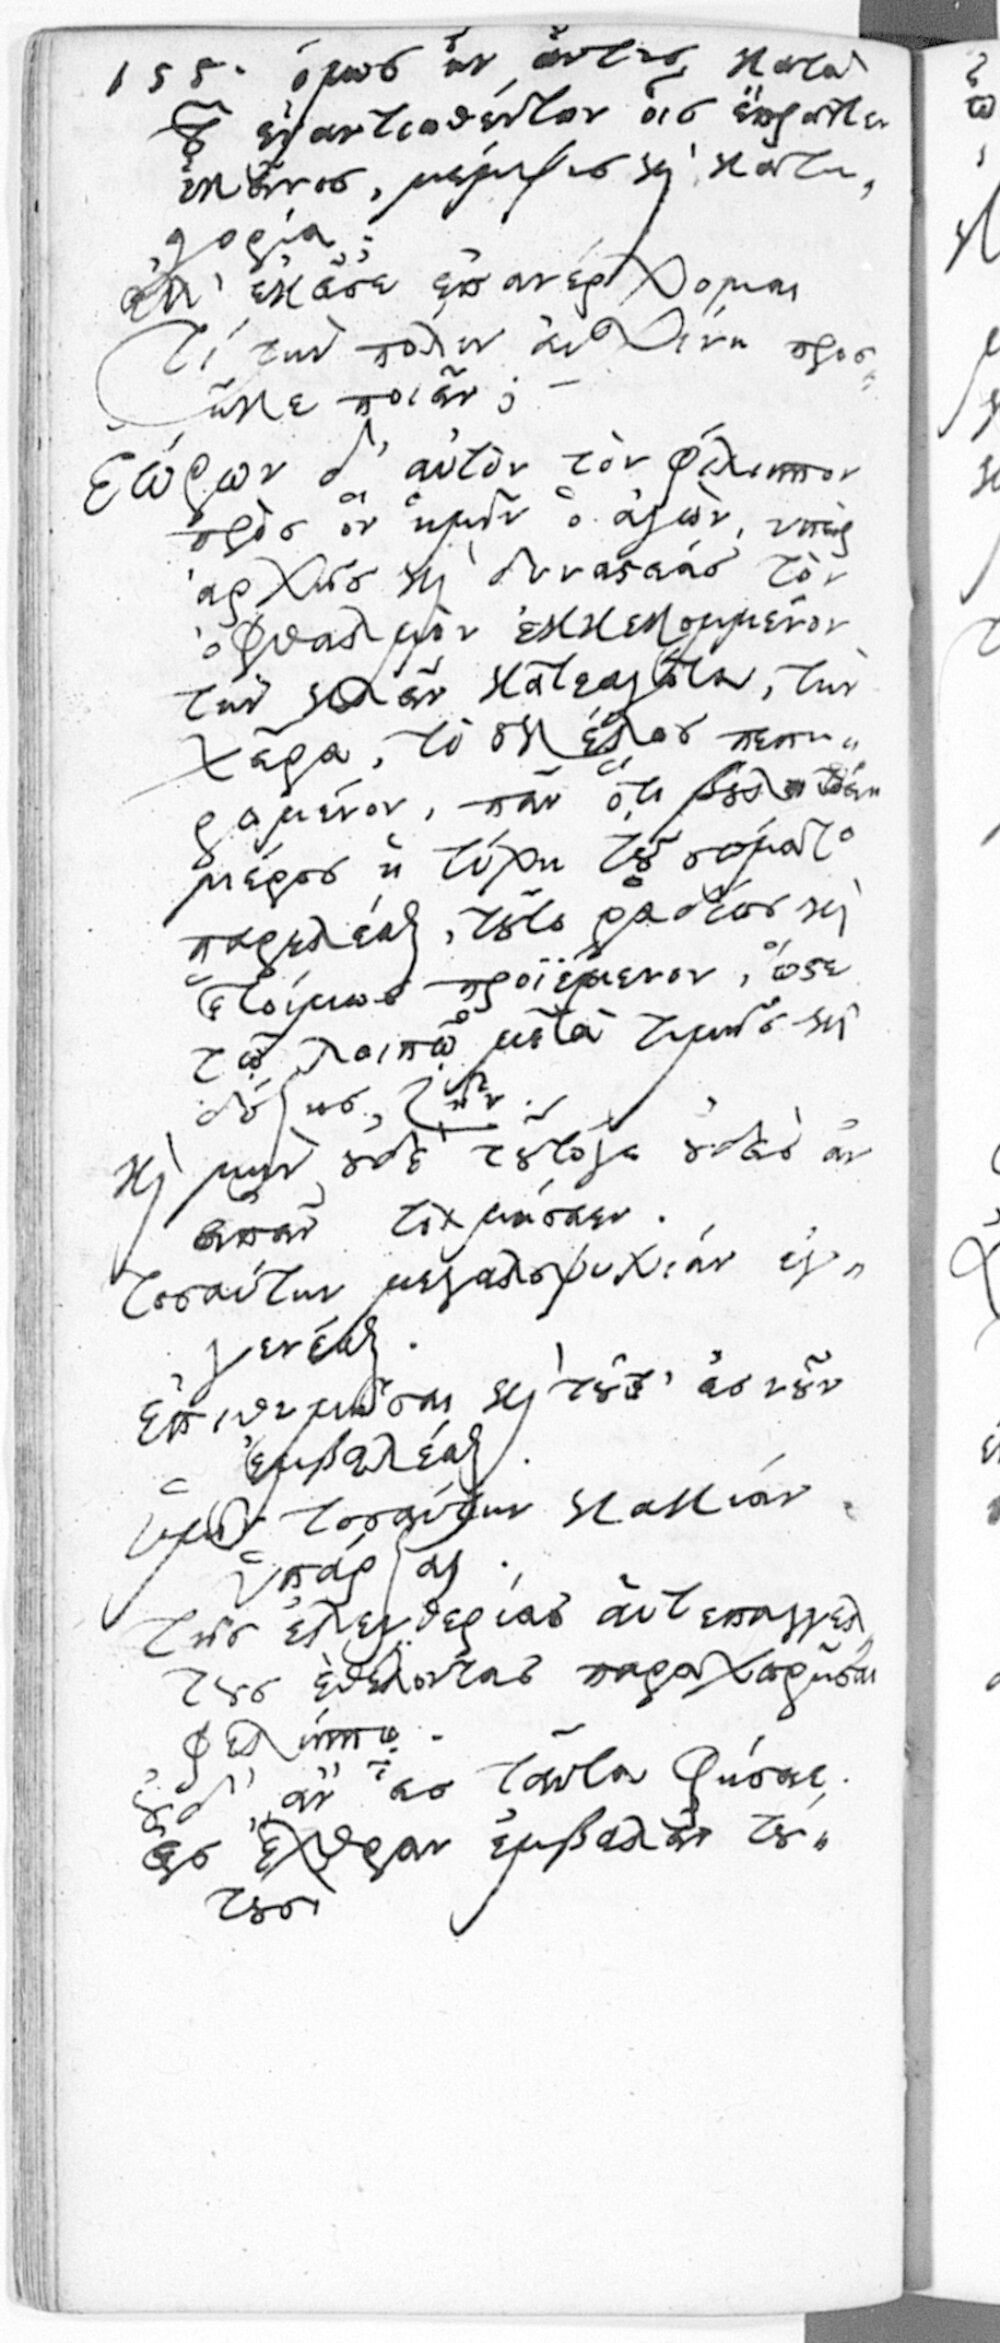 155. ὅμως ἦν ἄν τις κατὰ
τῶν ἐναντιωθέντων οἷς ἔπραττεν
ἐκεῖνος, μέμψις καὶ κατη,
γορία.
ἀλλ' ἐκεῖσε ἐπανέρχομαι
Τί τὴν πόλιν Αἰσχίνη προσ=
ῆκε ποιεῖν; –
Ἑώρων δ' αὐτὸν τὸν φίλιππον
πρὸς ὃν ἡμῖν ὁ ἀγὼν, ὑπὲρ
ἀρχῆς καὶ δυναστείας τὸν
ὀφθαλμὸν ἐκκεκομμένον
τὴν κλεῖν κατεαγότα, τὴν
χεῖρα, τὸ σκέλος πεπη=
ρωμένον, πᾶν ὅ,τι βουληθείη
μέρος ἡ τύχη τοῦ σώματος
παρελέσθαι, τοῦτο ῥαδίως καὶ
ἑτοίμως προϊέμενον, ὥστε
τῷ λοιπῷ μετὰ τιμῆς καὶ
δόξης ζῆν.
καὶ μὴν οὐδὲ τοῦτό γε οὐδεὶς ἂν
εἰπεῖν τολμήσαι.
τοσαύτην μεγαλοψυχίαν ἐγ=
γενέσθαι.
ἐπιθυμῆσαι καὶ τοῦτ' εἰς νοῦν
ἐμβαλέσθαι.
ὑμῖν τοσαύτην κακίαν
ὑπάρξαι.
τῆς ἐλευθερίας αὐτεπαγγέλ
τους ἐθελοντὰς παραχωρῆσαι
φιλίππῳ.
οὐδ' ἂν εἷς ταῦτα φήσαι.
εἰς ἔχθραν ἐμβαλεῖν τού=
τοις